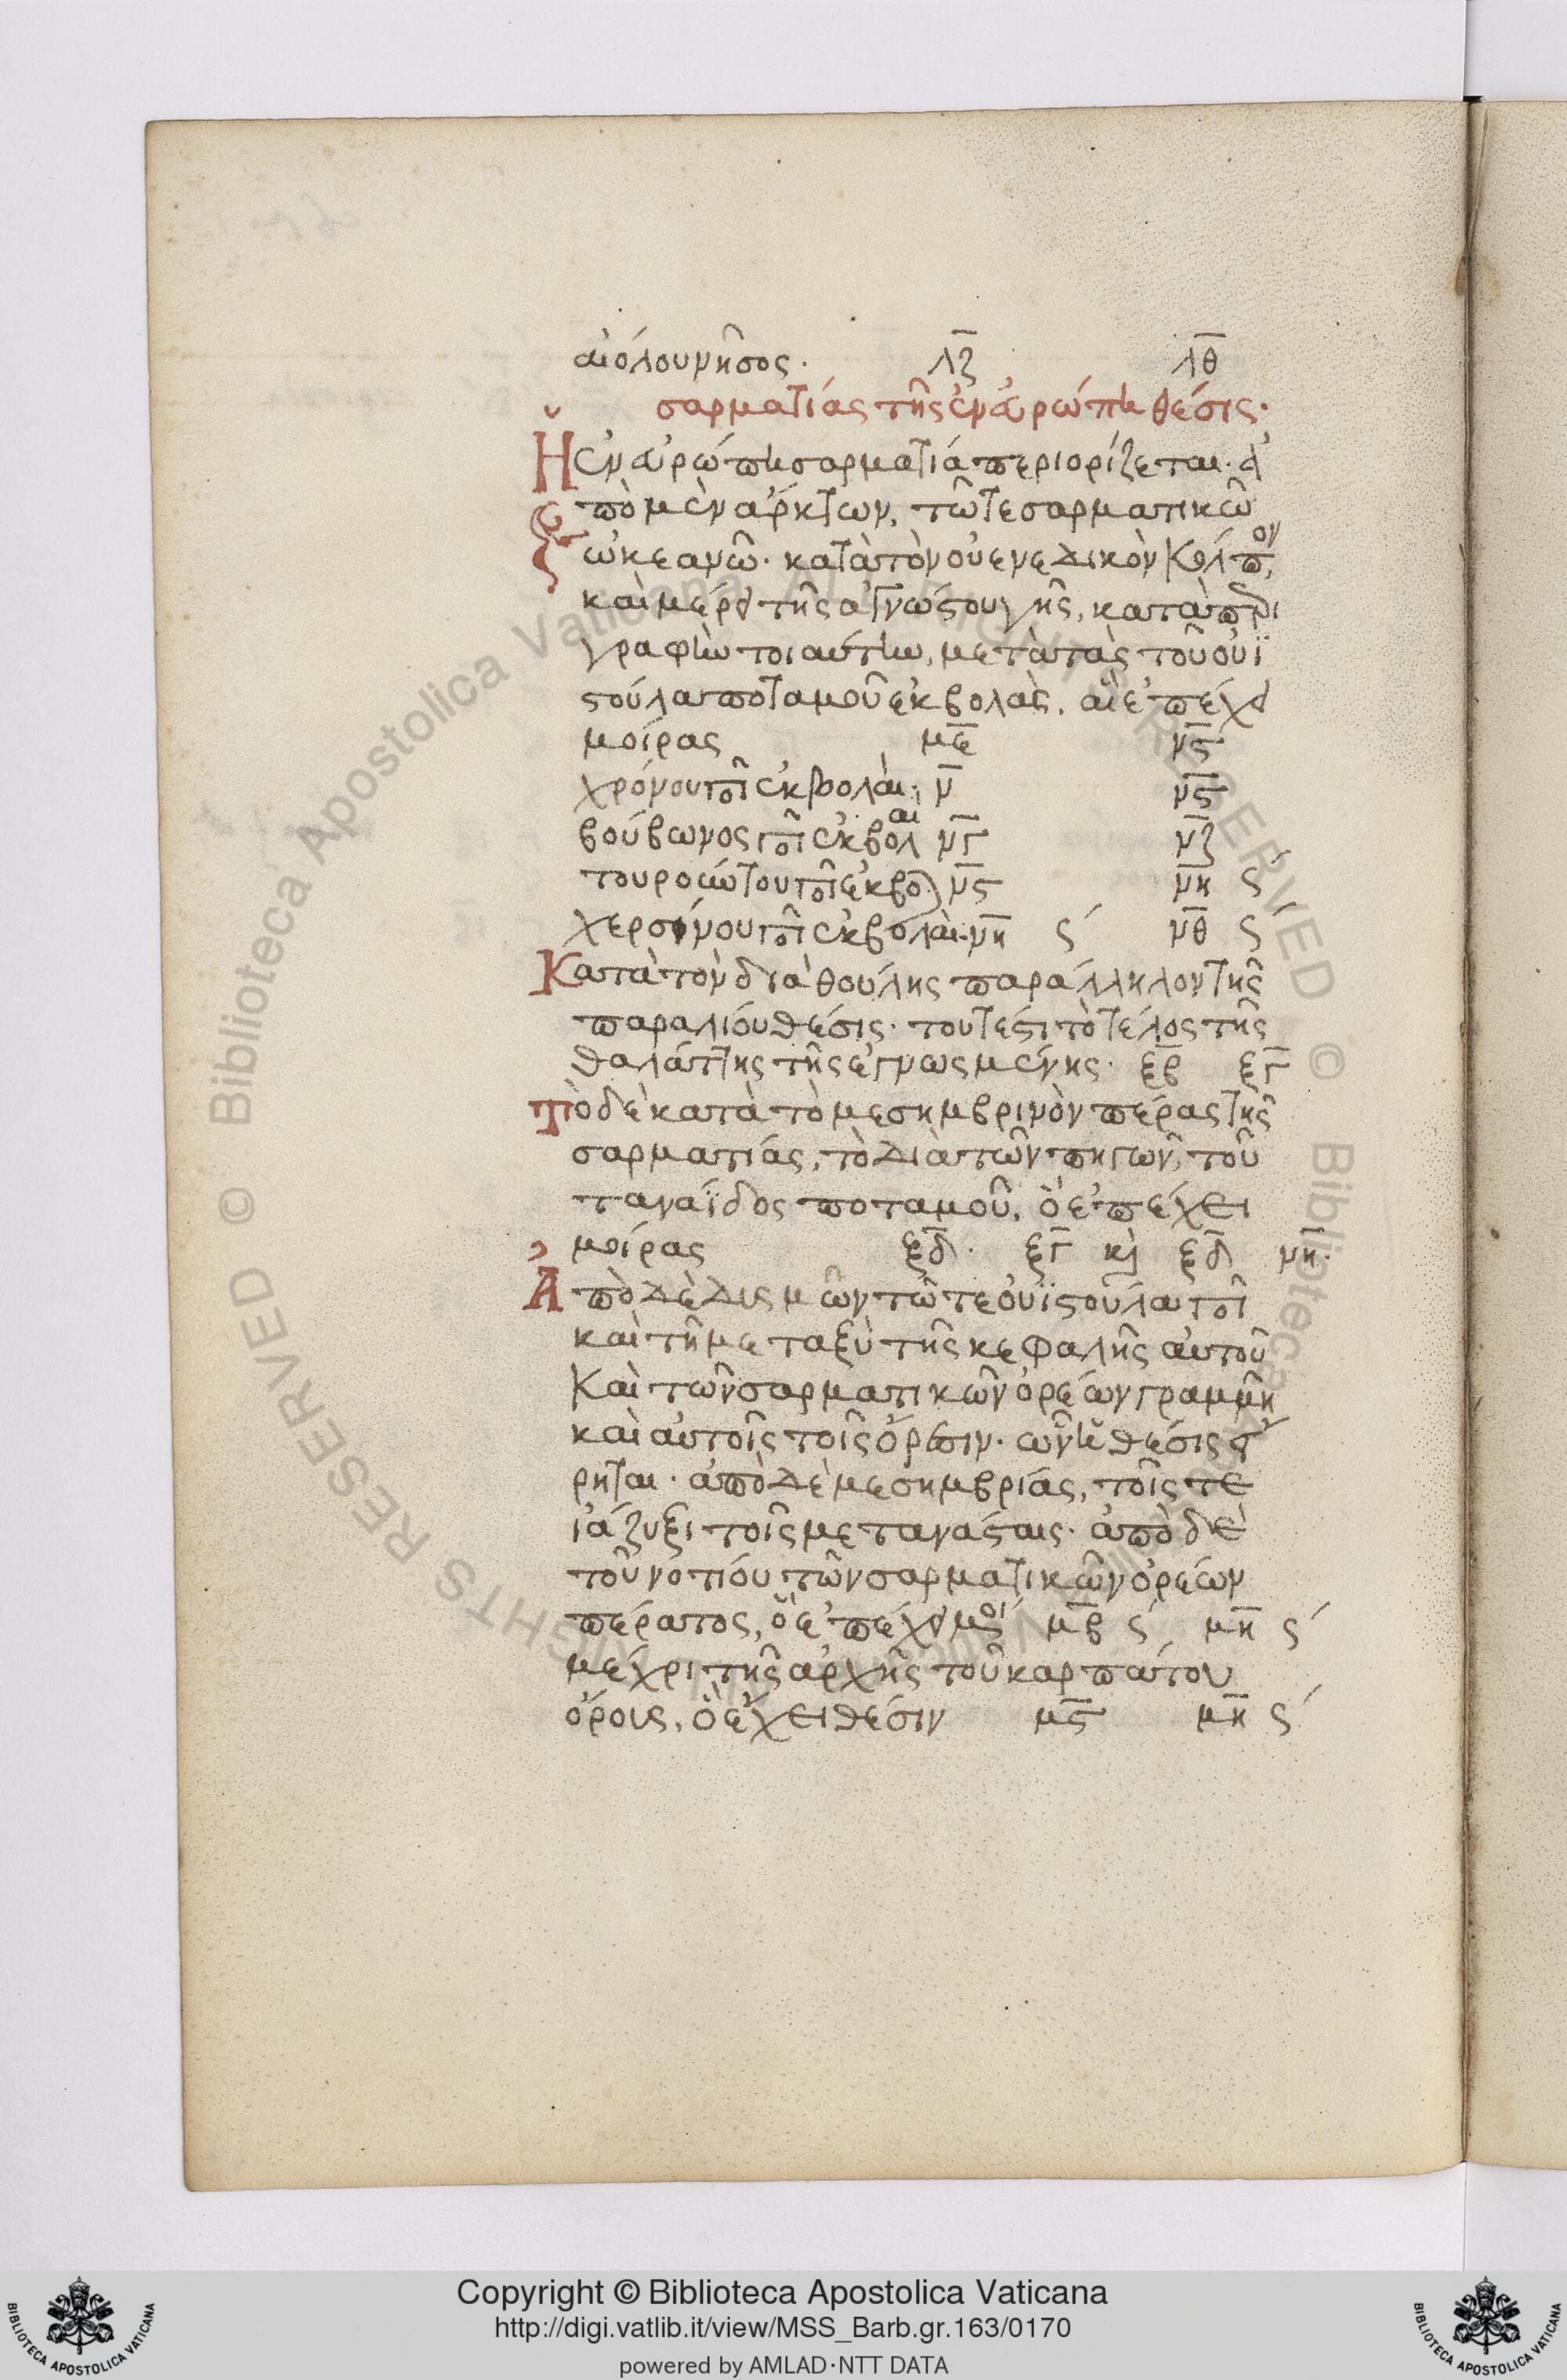 αἰόλου νῆσος· λζ λθ
σαρματίας τῆς ἐν εὐρώπῃ θέσις·
Ἡ ἐν εὐρώπῃ σαρματία περιορίζεται· ἀ
πὸ μὲν ἄρκτων, τῶ τε σαρματικῶ
ὠκεανῶ· κατὰ τὸν οὐενεδικὸν κόλπον,
καὶ μέρει τῆς ἀγνώστου γῆς, κατὰ περι
γραφὴν τοιαύτην, μετὰ τὰς τοῦ οὐϊ
στούλα ποταμοῦ ἐκβολὰς, αἳ ἐπέχει
μοίρας με νς
χρόνου ποτ ἐκβολαὶ· ν νς
βούβωνος ποτ ἐκβολαι νγ νζ
τουρούντου ποτ ἐκβο νς νη ς
χερσίνου ποτ ἐκβολαὶ· νη ς νθ ς
Κατὰ τὸν διὰ θούλης παράλληλον τῆς
παραλίου θέσις· τουτέστι τὸ τέλος τῆς
θαλάττης τῆς ἐγνωσμένης· ξβ ξγ
τὸ δὲ κατὰ τὸ μεσημβρινὸν πέρας τῆς
σαρματίας, τὸ διὰ τῶν πηγῶν, τοῦ
ταναΐδος ποταμοῦ, ὃ ἐπέχει
μοίρας ξδ· ξγ κὶ ξδ νη·
Ἀπὸ δὲ δυσμῶν τῶ τε οὐϊστούλα ποτ
καὶ τῆ μεταξὺ τῆς κεφαλῆς αὐτοῦ
Καὶ τῶν σαρματικῶν ὀρέων γραμμῆ
καὶ αὐτοῖς τοῖς ὄρεσιν· ὧν ἡ θέσις εἴ
ρηται· ἀπὸ δὲ μεσημβρίας, τοῖς τε
ἰάζυξι τοῖς μετανάσταις· ἀπὸ δὲ
τοῦ νοτίου τῶν σαρματικῶν ὀρέων
πέρατος, ὃ ἐπέχει μοί μβ ς μη ς
μέχρι τῆς ἀρχῆς τοῦ καρπάτου
ὄρους, ὃ ἔχει θέσιν μς μη ς
Copyright © Biblioteca Apostolica Vaticana
http://digi.vatlib.it/view/MSS_Barb.gr.163/0170
powered by AMLAD·NTT DATA
BIBLIOTECA APOSTOLICA VATICANA
BIBLIOTECA APOSTOLICA VATICANA